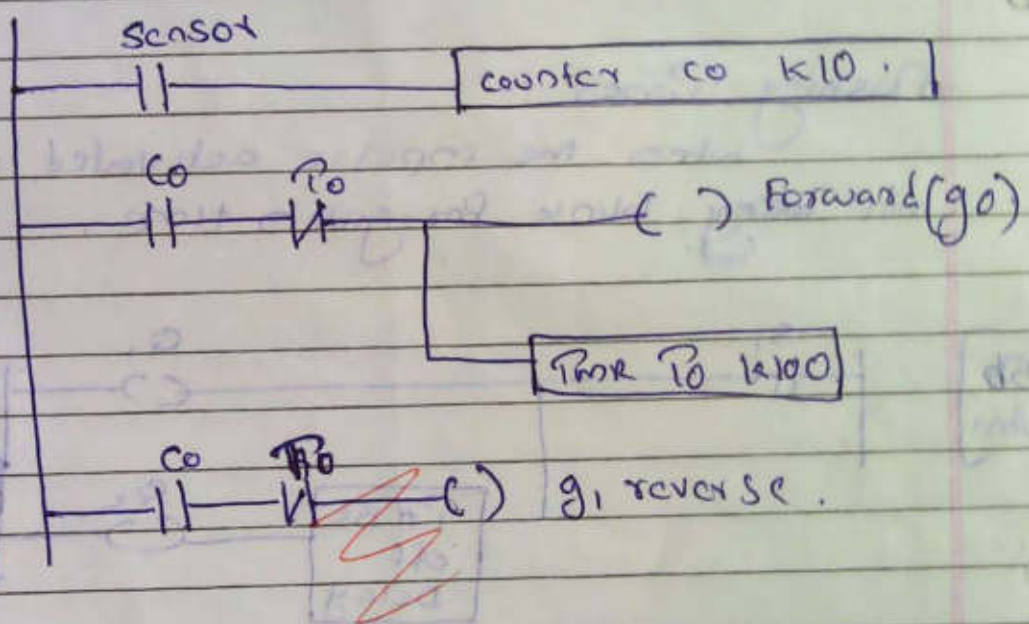 Sensor
counter C0 K10.
C0 T0
( ) Forward (90)
TMR T0 K100
C0 T0
( ) 91 reverse.